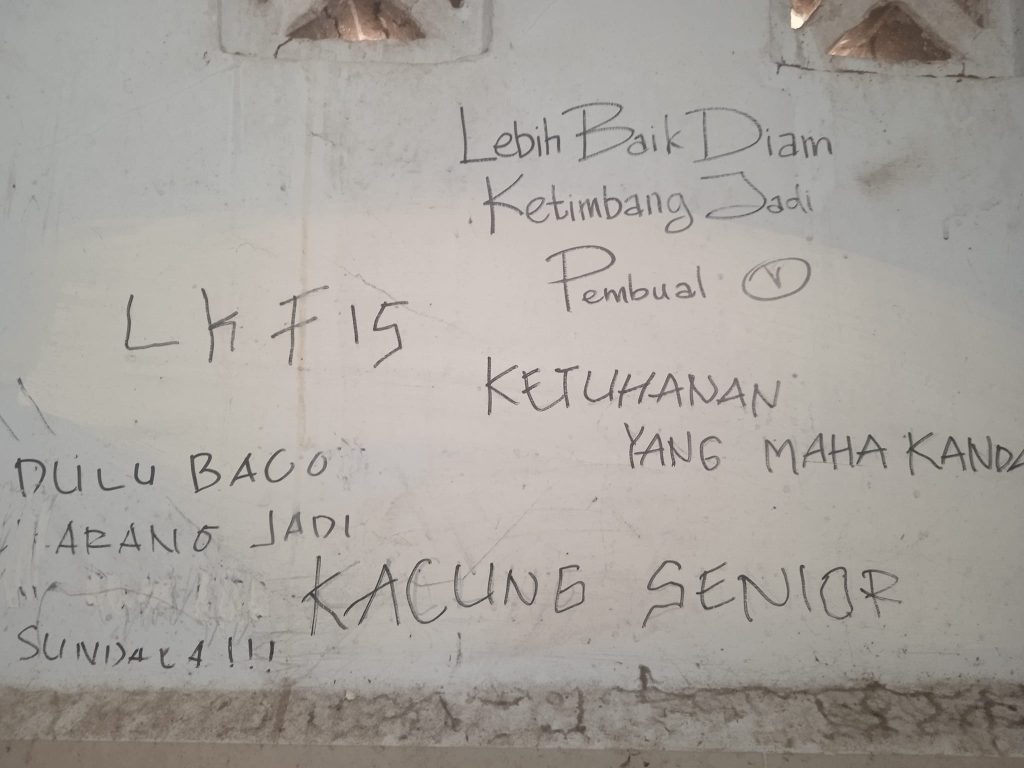 Lebih Baik Diam
Ketimbang Jadi
Pembual
LKFIS
KETUHANAN
YANG MAHA KANDA
DULU BACO
ARANG JADI
KACUNG SENIOR
SUNDALA!!!